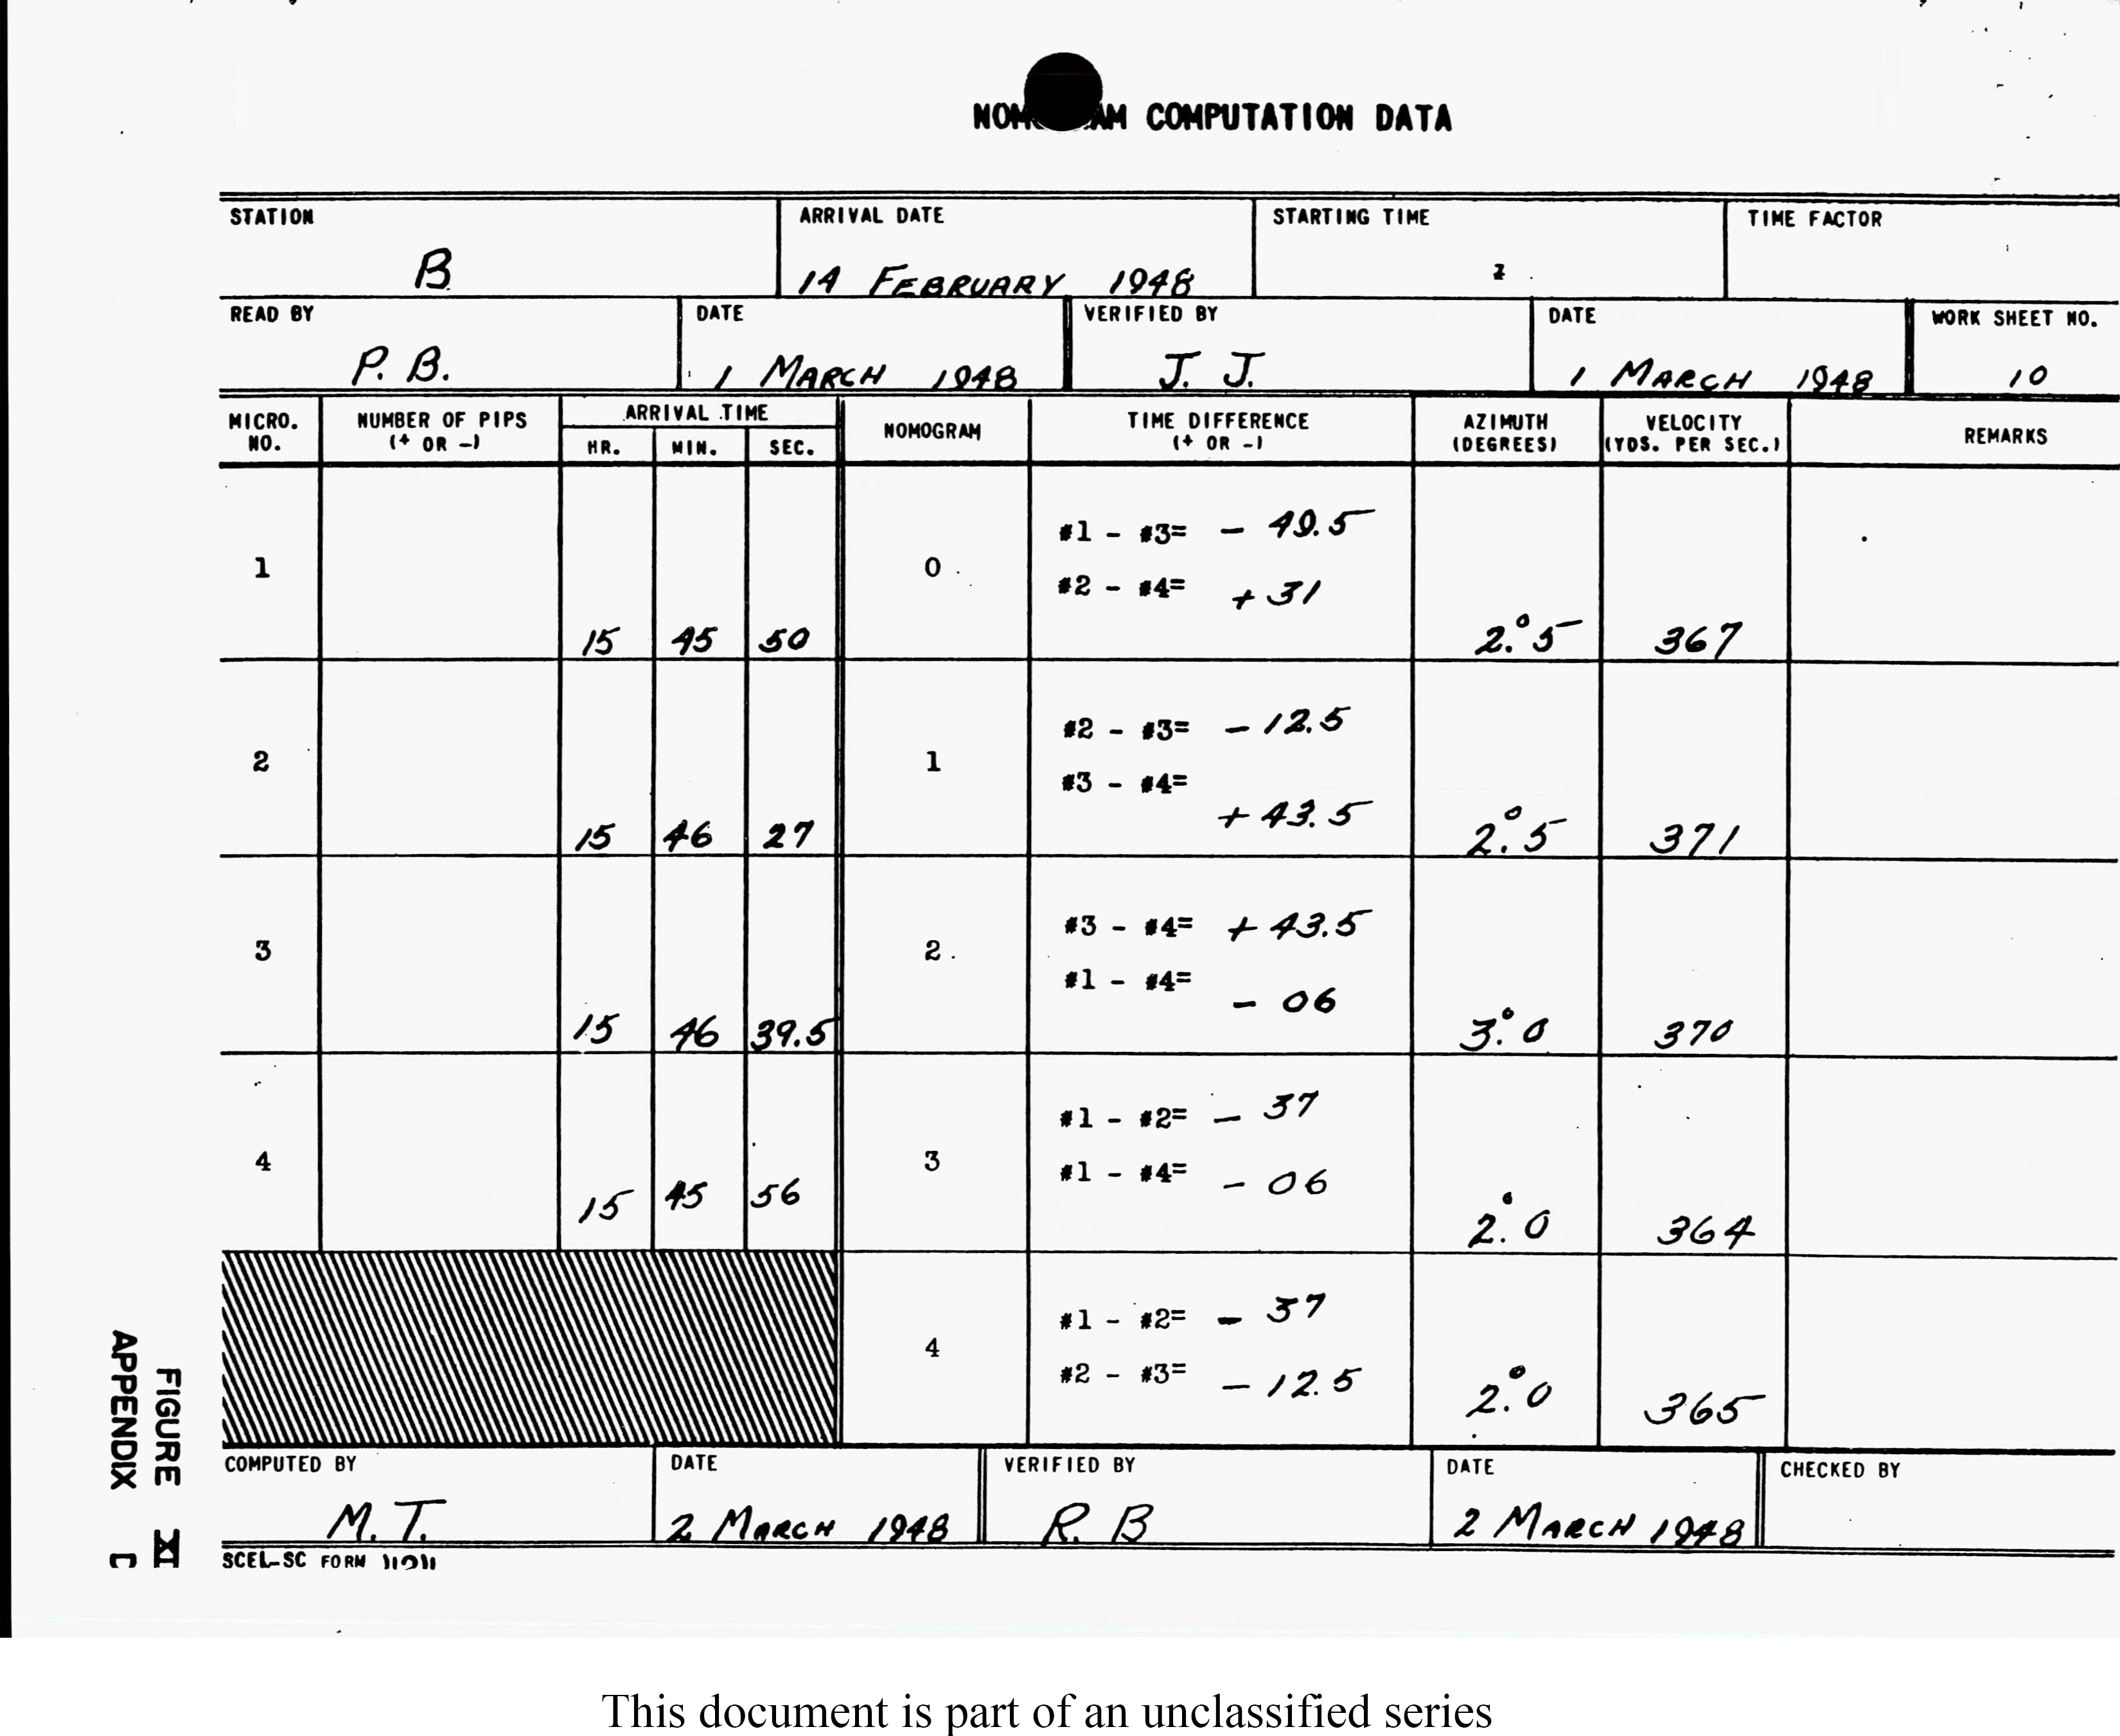 COMPUTATION DATA
STATION ARRIVAL DATE STARTING TIME TIME FACTOR
B 14 FEBRUARY 1948
READ BY DATE VERIFIED BY DATE WORK SHEET NO.
P. B. 1 MARCH 1948 J. J. 1 MARCH 1948 10
MICRO. NO. NUMBER OF PIPS (+ OR -) ARRIVAL TIME HR. MIN. SEC. NOMOGRAM TIME DIFFERENCE (+ OR -) AZIMUTH (DEGREES) VELOCITY (YDS. PER SEC.) REMARKS
#1 - #3= - 49.5
1 0
#2 - #4= + 31
15 45 50 2.°5 367
#2 - #3= - 12.5
2 1
#3 - #4=
+ 43.5
15 46 27 2.°5 371
#3 - #4= + 43.5
3 2
#1 - #4=
- 06
15 46 39.5 3.°0 370
#1 - #2= - 37
4 3
#1 - #4= - 06
15 45 56 2.°0 364
#1 - #2= - 37
4
#2 - #3= - 12.5
2.°0 365
COMPUTED BY DATE VERIFIED BY DATE CHECKED BY
M. T. 2 MARCH 1948 R. B 2 MARCH 1948
SCEL-SC FORM
FIGURE XI
APPENDIX C
This document is part of an unclassified series